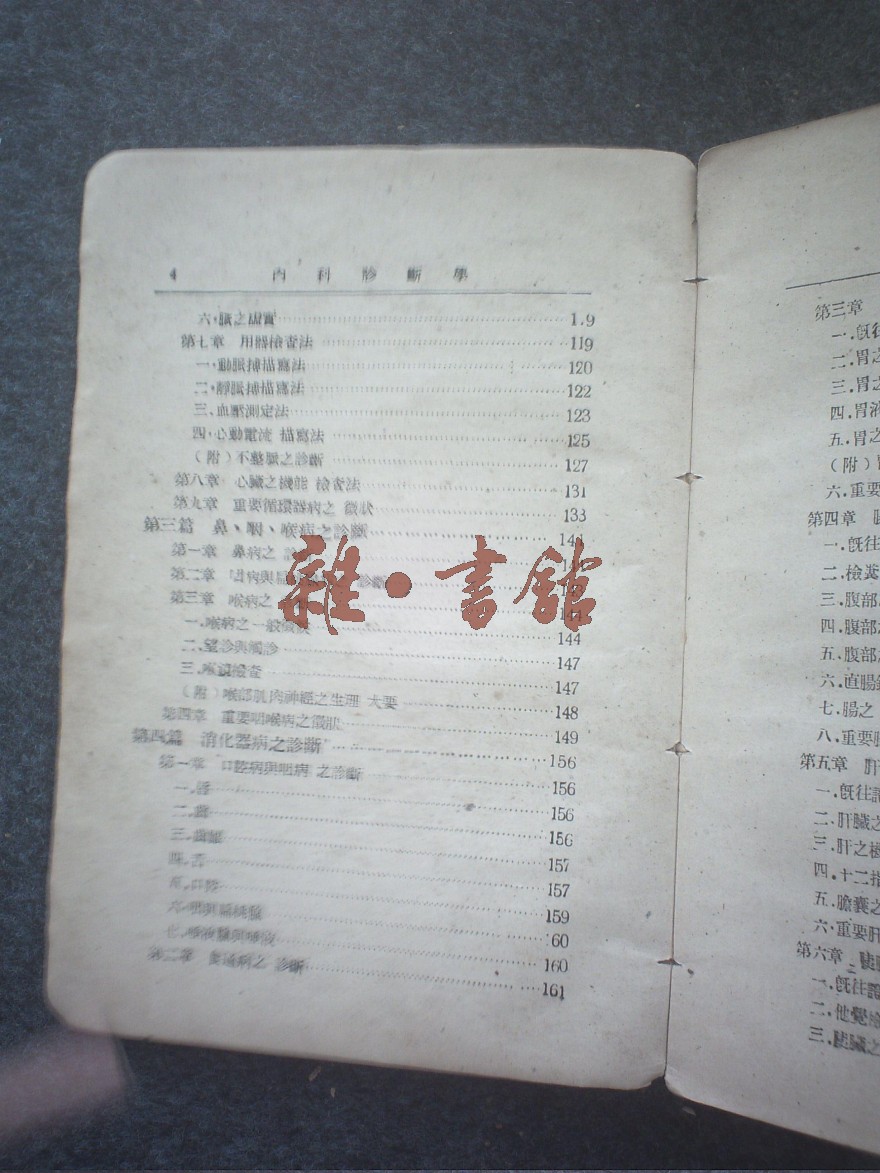 4 內科診斷學
六.臟之虛實 1.9
第七章 用器檢查法 119
一.動脈搏描寫法 120
二.靜脈搏描寫法 122
三.血壓測定法 123
四.心動電流 描寫法 125
(附)不整脈之診斷 127
第八章 心臟之機能 檢查法 131
第九章 重要循環器病之 徵狀 133
第三篇 鼻、咽、喉病之診斷
第一章 鼻病之
第二章 診斷
第三章 喉病之
一.喉病之一般 144
二.望診與觸診 147
三.喉鏡檢查 147
(附)喉部肌肉神經之生理 大要 148
第四章 重要咽喉病之徵狀 149
第四篇 消化器病之診斷 156
第一章 口腔病與咽病 之診斷 156
一.唇 156
二.齒 156
三.齒齦 157
四.舌 157
五.口腔 159
六.咽與扁桃腺 60
七.唾液腺與唾液 160
第二章 食道病之 診斷 161
雜·書館
第三章
一.旣往
二.胃之
三.胃之
四.胃液
五.胃之
(附)
六.重要
第四章
一.旣往
二.檢糞
三.腹部
四.腹部
五.腹部
六.直腸
七.腸之
八.重要
第五章 肝
一.旣往
二.肝臟之
三.肝之
四.十二指
五.膽囊之
六.重要肝
第六章
一.旣往
二.他覺
三.臟之